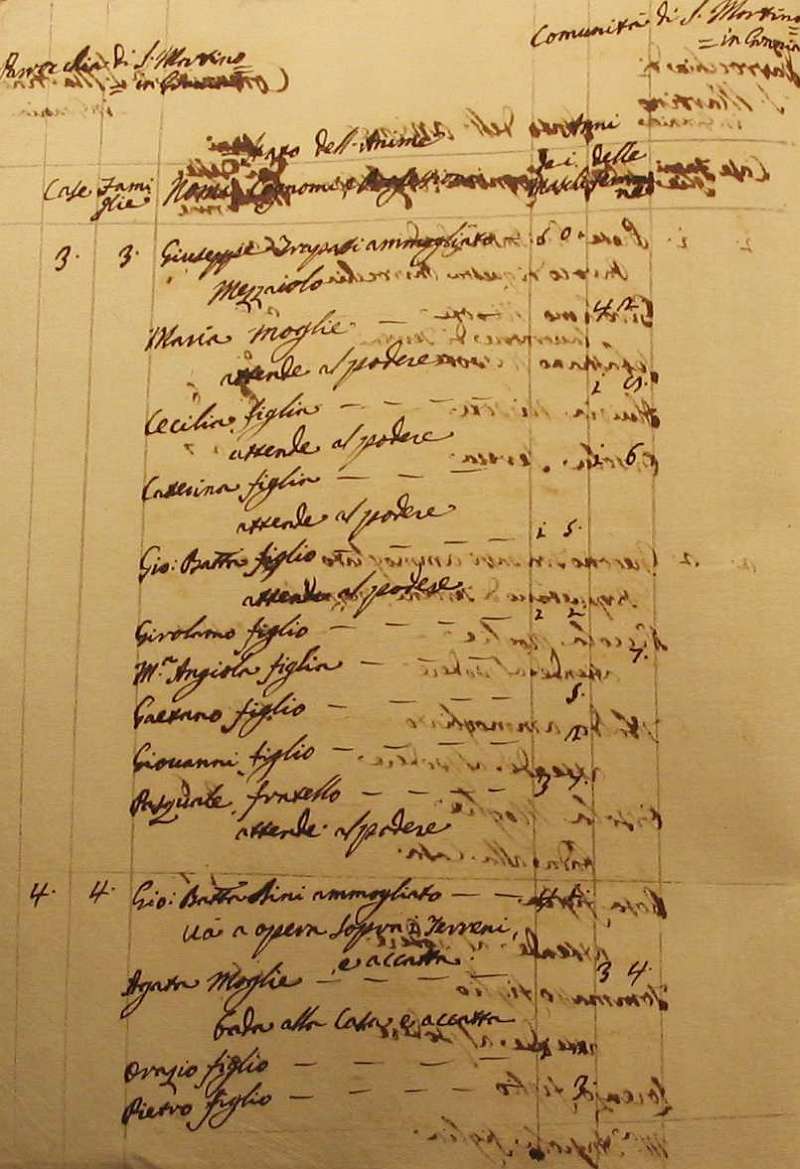 Parrochia di S. Martino
in
Comunità di S. Martino
in
Stato dell'Anime
Anni
Case Famiglie Nomi, Cognomi, e dei Maschi delle Femmine
3. 3. Giuseppe Trapasi ammogliato 60.
Mezzaiolo
Maria Moglie — 42
attende al podere
Cecilia figlia — — —
attende al podere
Caterina figlia — — — 16
attende al podere
Gio: Batta figlio — — — 15.
attende al podere
Girolamo figlio — — — 12
M.a Angiola figlia — 7.
Gaetano figlio — — — 5.
Giovanni figlio — — —
Pasquale fratello — — — 37.
attende al podere
4. 4. Gio: Batta Bini ammogliato — —
va a opera sopra i Terreni,
e accatta
Agata Moglie — — — 34.
bada alla Casa e accatta
Orazio figlio — — —
Pietro figlio — — — 3